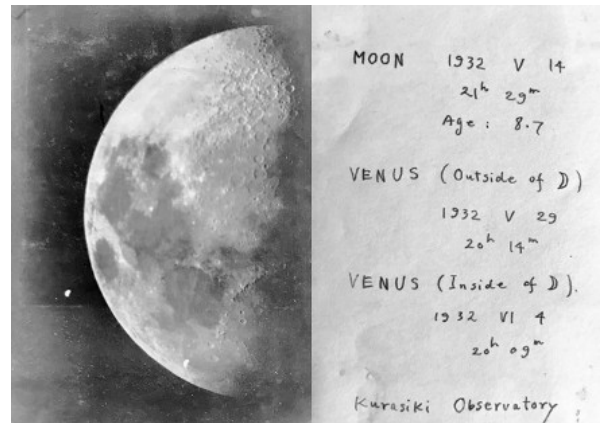 MOON 1932 V 14
21h 29m
Age: 8.7
VENUS (Outside of ☽)
1932 V 29
20h 14m
VENUS (Inside of ☽).
1932 VI 4
20h 09m
Kurasiki Observatory